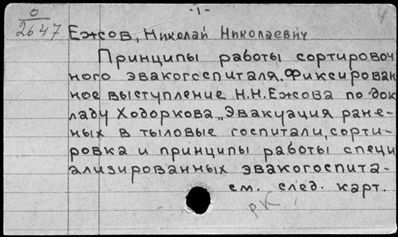 -1-
0
2647 Ежсов, Николай Николаевич
Принципы работы сортировоч
ного эвакогоспиталя. Фиксирован
ное выступление Н.Н. Ежсова по док
ладу Ходоркова „Эвакуация ране-
ных в тыловые госпитали, сорти-
ровка и принципы работы специ
ализированных эвакогоспита-
см. след. карт.
рк